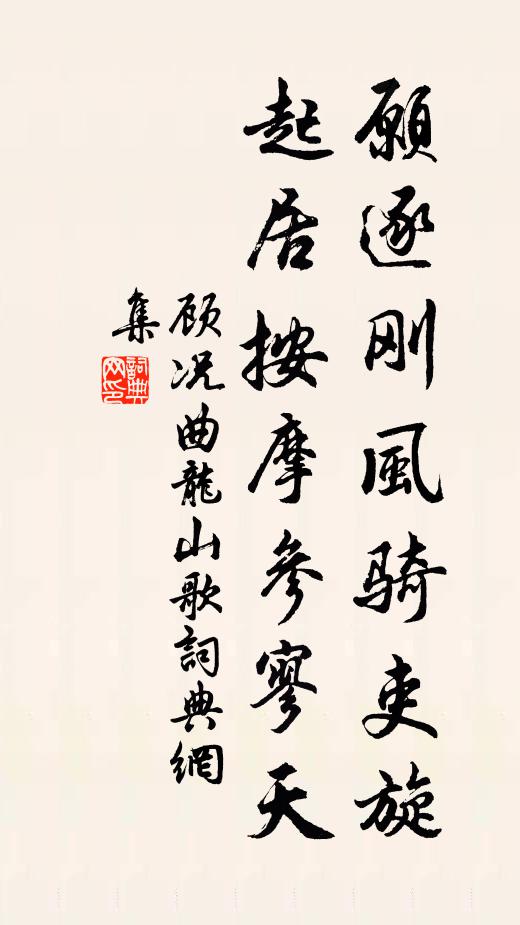 願逐刚風騎吏旋
起居按摩參寥天
顾况曲龍山歌詞典網
集
詞典
网印